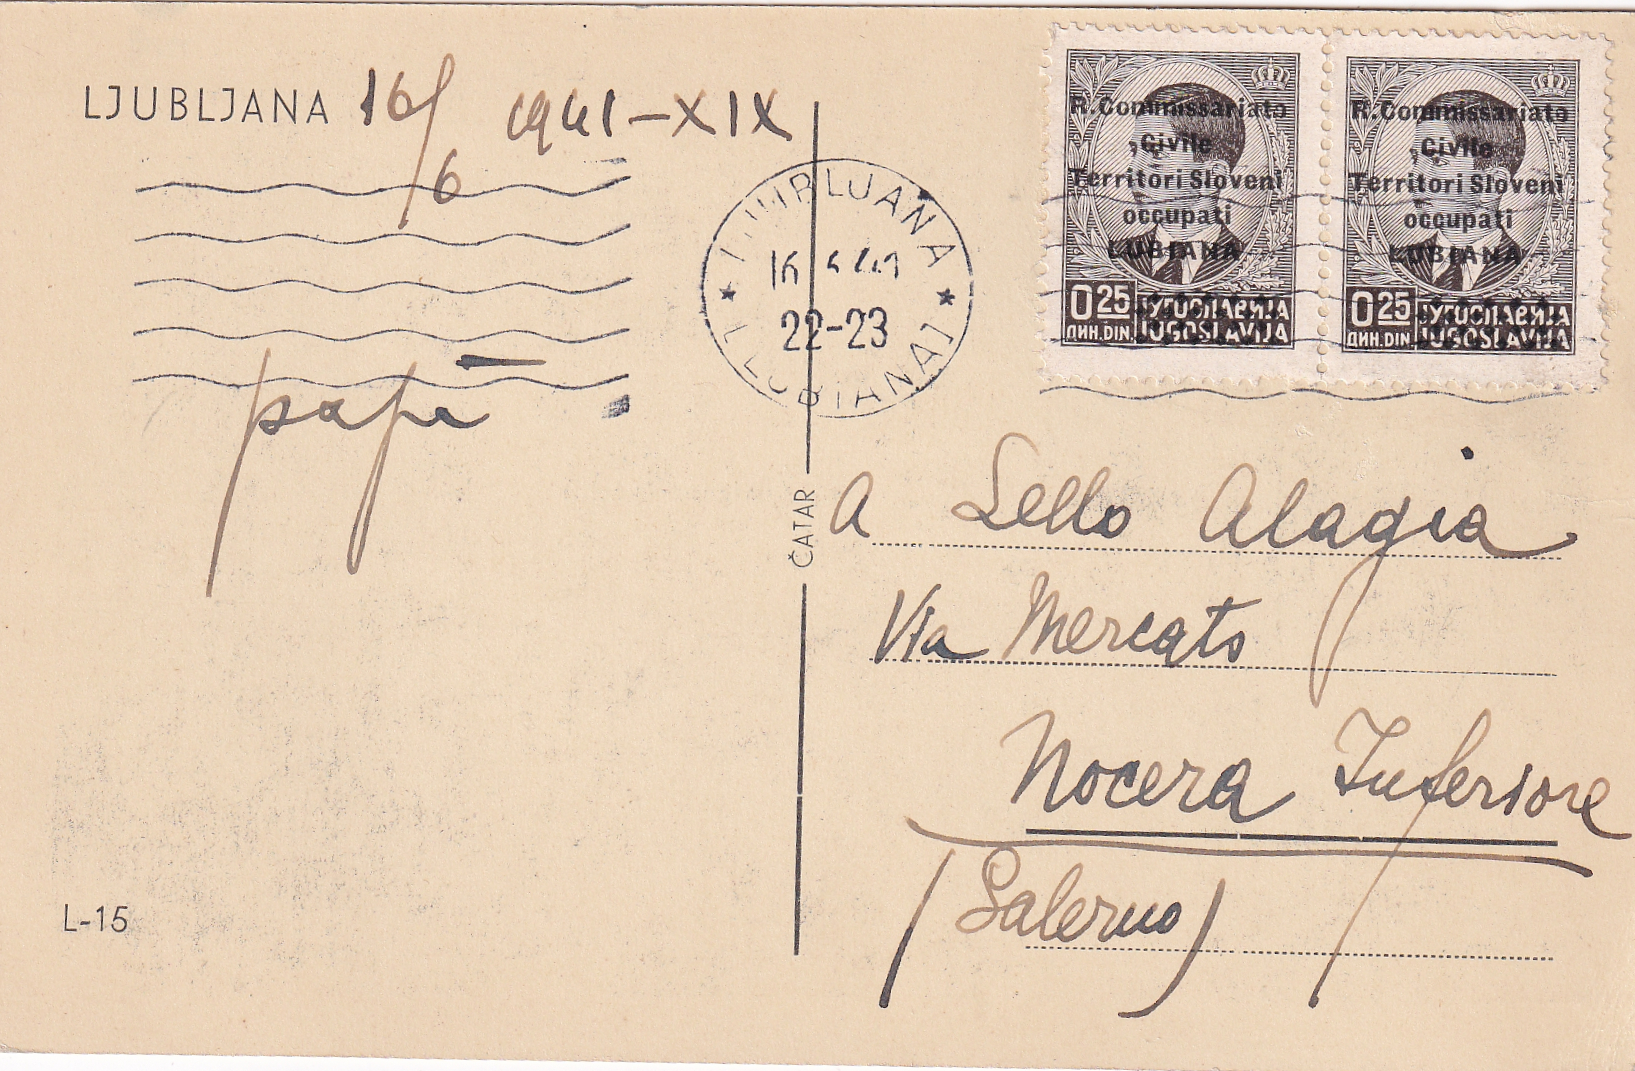 LJUBLJANA 16/6 1941-XIX
R. Commissariato
Civile
Territori Sloveni
occupati
LUBIANA
0.25 ЈУГОСЛАВИЈА
ДИН. DIN. JUGOSLAVIJA
R. Commissariato
Civile
Territori Sloveni
occupati
LUBIANA
0.25 ЈУГОСЛАВИЈА
ДИН. DIN. JUGOSLAVIJA
LJUBLJANA
16 41
22-23
papà
ČATAR
A Lello Alagia
Via Mercato
Nocera Inferiore
(Salerno)
L-15